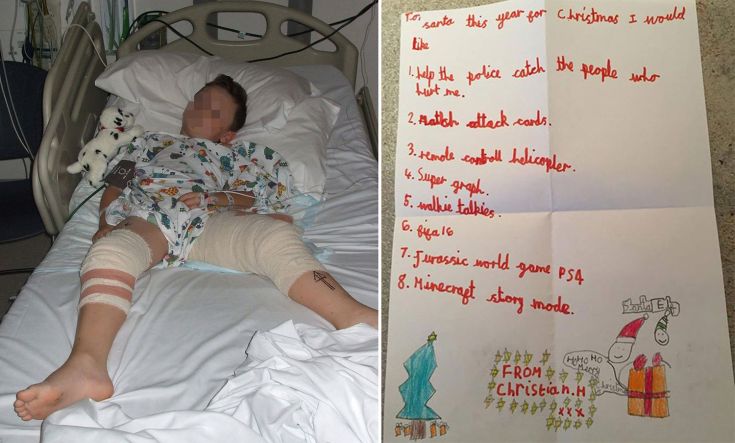 To. santa this year for Christmas I would
like
1. help the police catch the people who
hurt me.
2. Match attack cards.
3. remote controll helicopter.
4. Super graph.
5. walkie talkies.
6. fifa 16
7. Jurassic world game PS4
8. Minecraft story mode.
Santa
HoHoHO
Merry
christmas
FROM
Christian.H
xxx